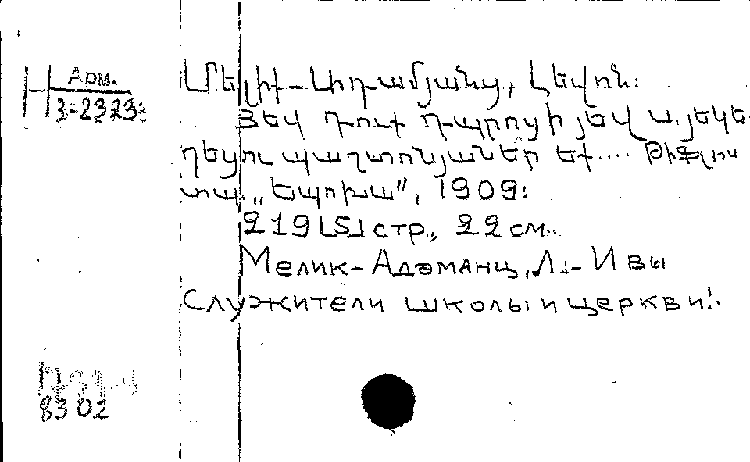 Арм.
Н 3-2323
Մելիք-Ադամյանց, Լեվոն.
Յեվ դուք դպրոցի յեվ այեկե-
ղեցու պաշտոնյաներ եք.... Թիֆլիս
տպ. „Եպոխա", 1909:
219 [5] стр., 22 см.
Мелик-Адаманц, Л. - И вы
служители школы и церкви!
8302